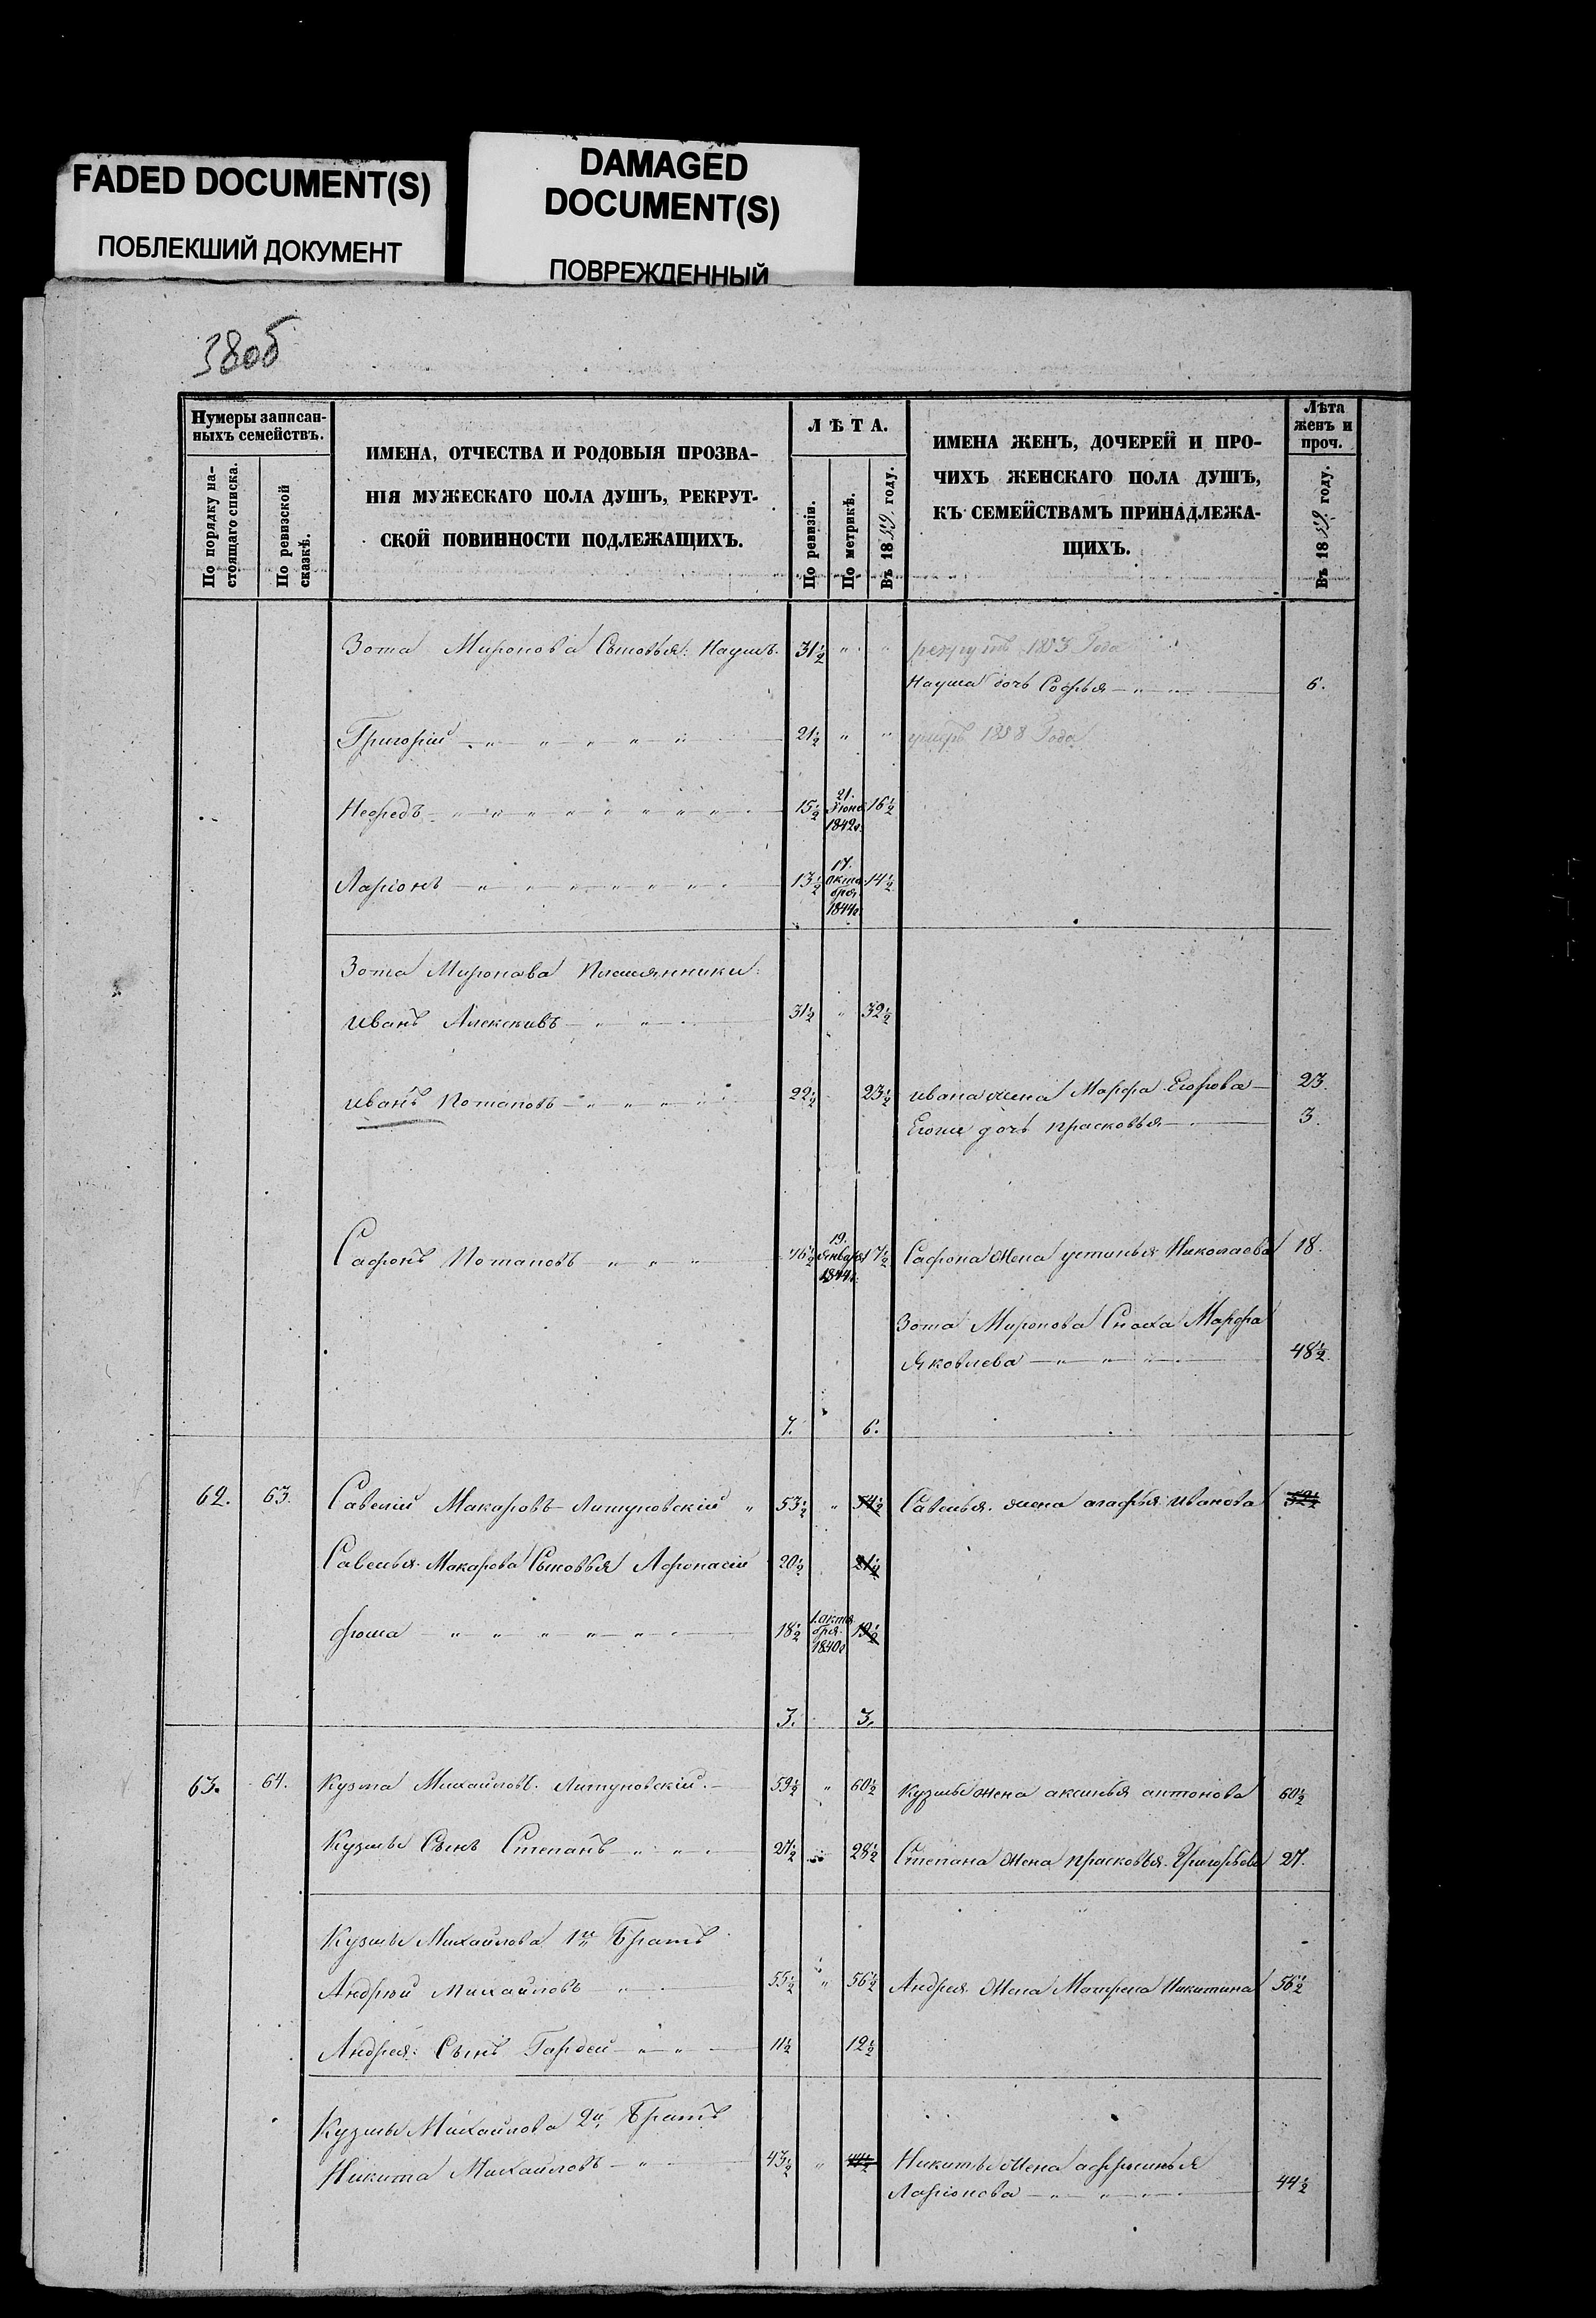 FADED DOCUMENT(S)
ПОБЛЕКШИЙ ДОКУМЕНТ
DAMAGED
DOCUMENT(S)
ПОВРЕЖДЕННЫЙ
38об
Нумеры записан-
ныхъ семействъ.
По порядку на-
стоящаго списка.
По ревизской
сказкѣ.
ИМЕНА, ОТЧЕСТВА И РОДОВЫЯ ПРОЗВА-
НІЯ МУЖЕСКАГО ПОЛА ДУШЪ, РЕКРУТ-
СКОЙ ПОВИННОСТИ ПОДЛЕЖАЩИХЪ.
ЛѢТА.
По ревизіи.
По метрикѣ.
Въ 1859 году.
ИМЕНА ЖЕНЪ, ДОЧЕРЕЙ И ПРО-
ЧИХЪ ЖЕНСКАГО ПОЛА ДУШЪ,
КЪ СЕМЕЙСТВАМЪ ПРИНАДЛЕЖА-
ЩИХЪ.
Лѣта
женъ и
проч.
Въ 1859 году.
Зота Миронова Сыновья: Наумъ. 31½ " " рекрутъ 1853 Года
Наума дочь Софья 6.
Григорій 21½ " " умеръ 1858 Года
Нефедъ 15½ 21. Июня 1842г. 16½
Ларіонъ 13½ 17. октября 1844г. 14½
Зота Миронова Племянники:
Иванъ Алексѣевъ 31½ " 32½
Иванъ Потаповъ 22½ 23½ Ивана жена Марфа Егорова 23.
Егоже дочь Прасковья 3.
Сафонъ Потаповъ 16½ 19. Января 1844г. 17½ Сафона жена устинья Николаева 18.
Зота Миронова Сноха Марфа
Яковлева 48½
7. 6.
62. 63. Савелій Макаровъ Литуновскій " 53½ " 54½ Савелья жена агафья Иванова 52½
Савелья Макарова Сыновья Афонасій 20½ 21½
фома 18½ 1. октября 1840г 19½
3. 3.
63. 64. Кузма Михайловъ Литуновскій 59½ " 60½ Кузмы жена аксинья антонова 60½
Кузмы Сынъ Степанъ 27½ " 28½ Степана жена прасковья Григорьева 27.
Кузмы Михайлова 1й Братъ
Андрей Михайловъ 55½ " 56½ Андрея жена Матрена Никитина 56½
Андрея: Сынъ Гордей 11½ 12½
Кузмы Михайлова 2й Братъ
Никита Михайловъ 43½ " 44½ Никиты жена афросинья
Ларіонова 44½